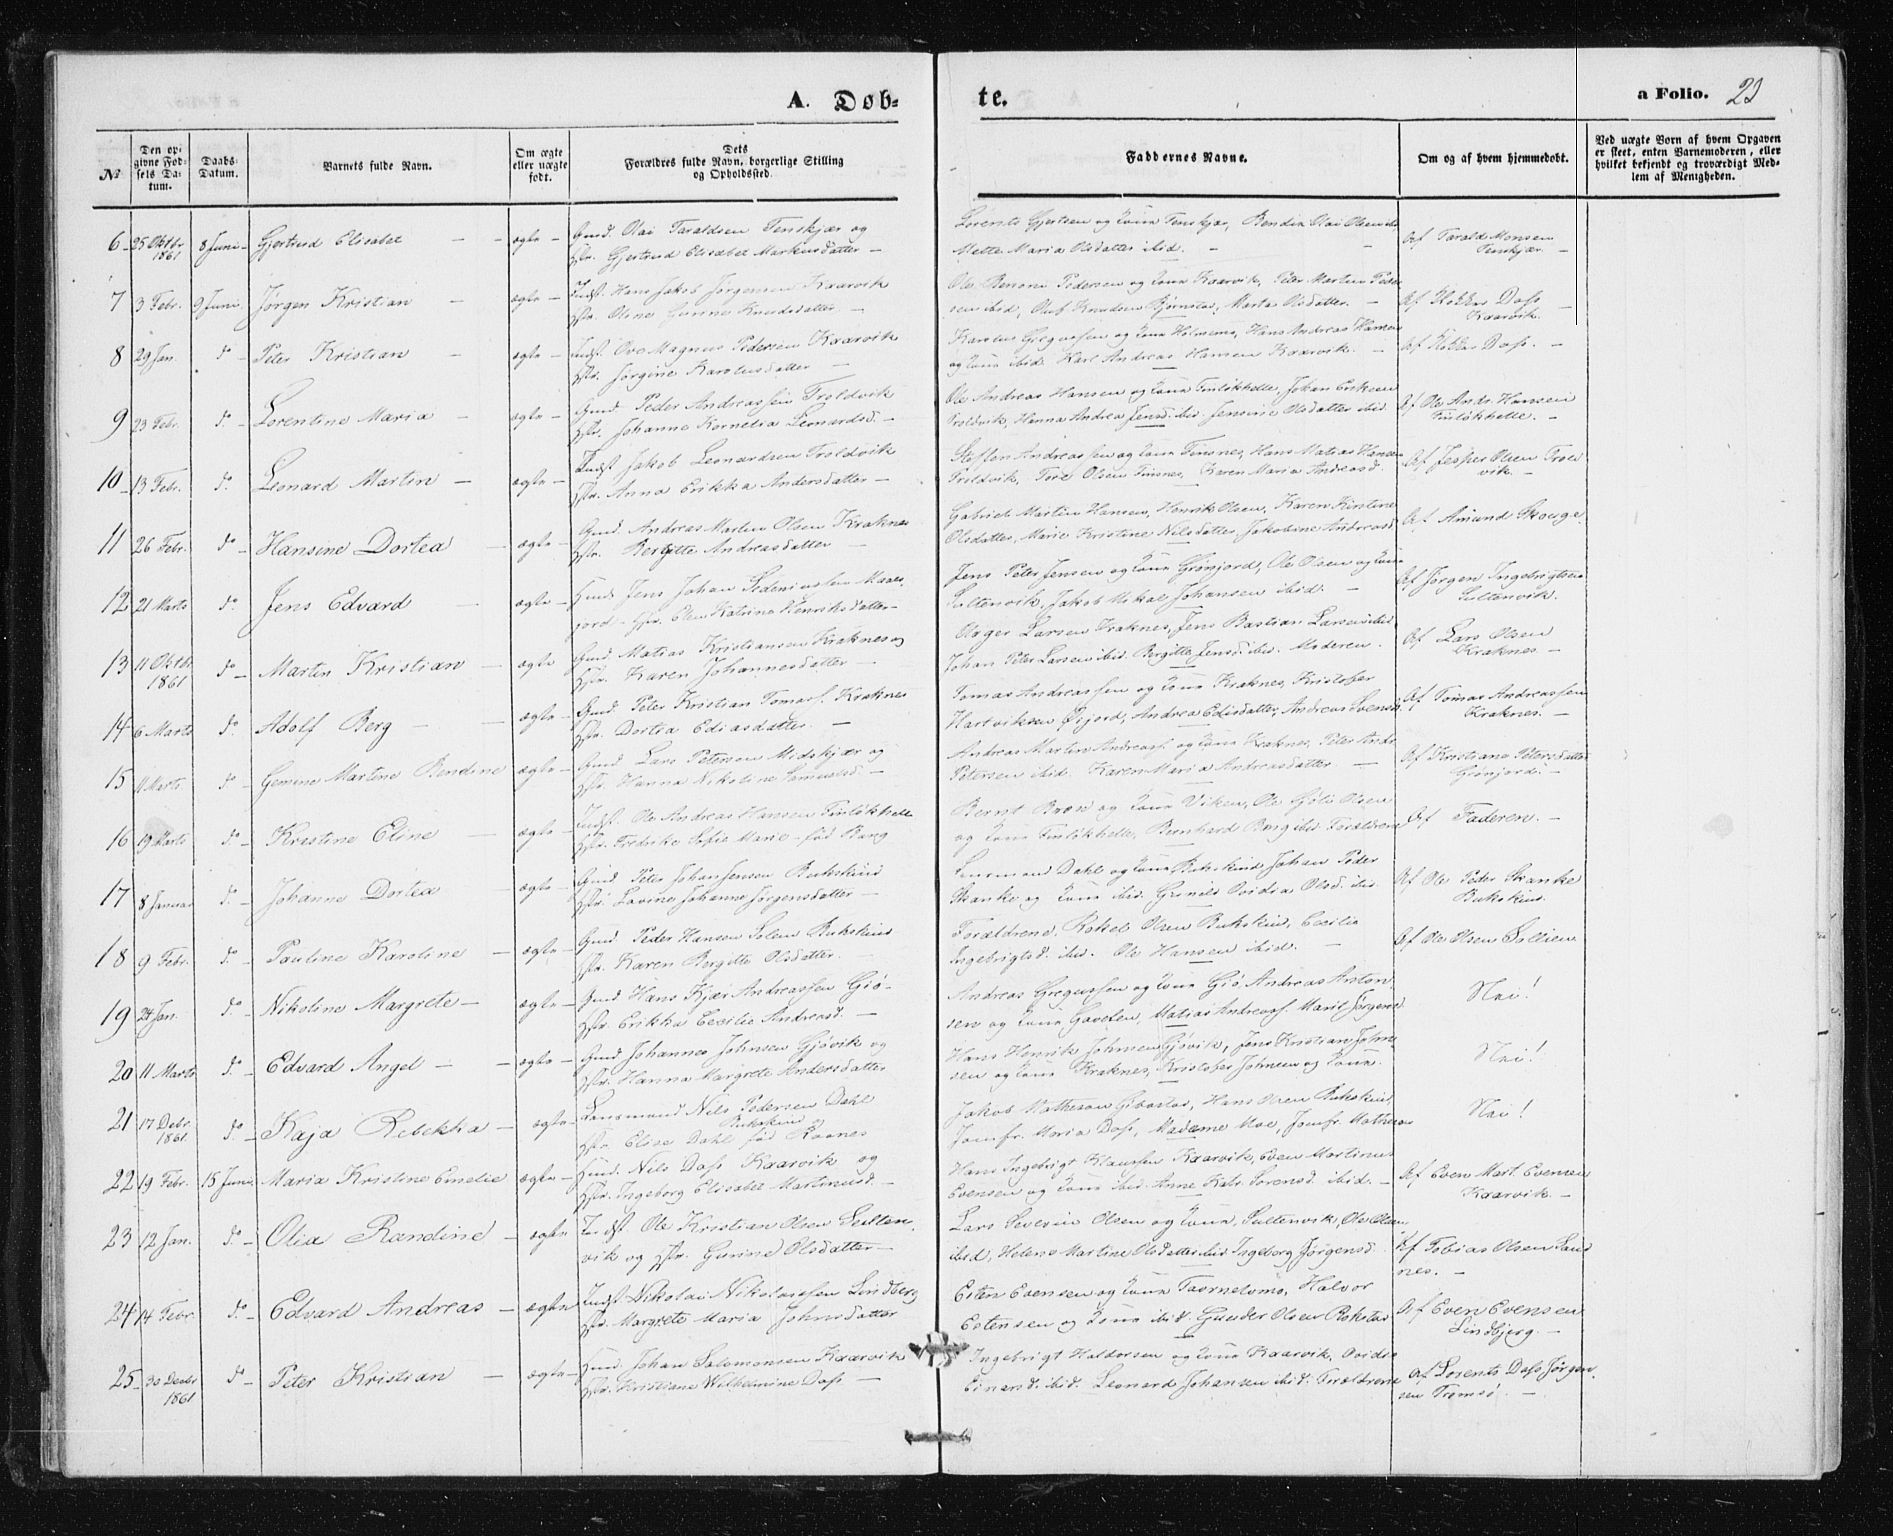 A. Døb-
te.
a Folio. 23
№
Den op-
givne Fød-
sels Da-
tum.
Daabs-
Datum.
Barnets fulde Navn.
Om ægte
eller uægte
født.
Dets
Forældres fulde Navn, borgerlige Stilling
og Opholdssted.
Faddernes Navne.
Om og af hvem hjemmedøbt.
Ved uægte Børn af hvem Opgaven
er skeet, enten Barnemoderen, eller
hvilket bekjendt og troværdigt Med-
lem af Menigheden.
6 25 Oktbr 1861 8 Juni Gjertrud Elisabet ægte Gmd. Olai Taraldsen Tenskjær og
Hstr. Gjertrud Elisabet Markusdatter
Lorents Gjertsen og Kone Tenskjær, Bendix Olai Olsen ibid
Mette Maria Olsdatter ibid.
Af Tarald Monsen
Tenskjær.
7 3 Febr. 9 Juni Jørgen Kristian ægte Indst. Hans Jakob Jørgensen Kaarvik
Hstr. Oline Gurine Knudsdatter
Ole Benoni Pedersen og Kone Kaarvik, Peter Martin Peder
sen ibid, Oluf Knudsen Bjørnstad, Marta Olsdatter.
Af Klokker Dass
Kaarvik.
8 29 Jan. do Peter Kristian ægte Indst. Ove Magnus Pedersen Kaarvik
Hstr. Jørgine Karolusdatter
Karolus Gregussen og Kone Holmene, Hans Andreas Hansen
og Kone ibid. Karl Andreas Hansen Kaarvik.
Af Klokker Dass.
9 23 Febr. do Lorentine Maria ægte Gmd. Peder Andreassen Troldvik
Hstr. Johanne Kornelia Leonardsd.
Ole Andreas Hansen og Kone Finløkhelle, Johan Eriksen
Troldvik, Hanna Andrea Jensd. ibid. Jensine Olsdatter ibid.
Af Ole Andr. Hansen
Finløkhelle.
10 13 Febr. do Leonard Martin ægte Indst Jakob Leonardsen Troldvik
Hstr. Anna Erikka Andersdatter
Steffen Andreassen og Kone Finsnes, Hans Matias Hansen
Troldvik, Tore Olsen Finsnes, Karen Maria Andreasd.
Af Jesper Olsen Trold
vik.
11 26 Febr. do Hansine Dortea ægte Gmd. Andreas Martin Olsen Kraknes
Hstr. Bergitte Andreasdatter
Gabriel Martin Hansen, Henrik Olsen, Karen Kirstine
Olsdatter, Marie Kristine Nilsdatter, Jakobine Andreasd
Af Amund Skouge.
12 21 Marts do Jens Edvard ægte Jens Johan
jord Hstr. Elen Katrina Henriksdatter
Jens Peter Jensen og Kone Grønjord, Ole Olsen og Kone
Sultenvik, Jakob Mikal Johansen ibid.
Af Jørgen Ingebrigtsen
Sultenvik.
13 11 Oktbr 1861 do Martin Kristian ægte Gmd. Matias Kristiansen Kraknes og
Hstr. Karen Johannesdatter
Larsen Kraknes, Jens Bastian Larsen ibid
Johan Peter Larsen ibid. Bergitte Jensd. ibid. Moderen.
Af Lars Olsen
Kraknes
14 6 Marts do Adolf Berg ægte Gmd. Peter Kristian Tomass. Kraknes
Hstr. Dortea Ediasdatter.
Tomas Andreassen og Kone Kraknes, Kristofer
Hartviksen Øijord, Andrea Edisdatter, Andreas Svensen
Af Tomas Andreassen
Kraknes.
15 11 Marts do Gemine Martine Bendine ægte Gmd. Lars Petersen Midskjær og
Hstr. Hanna Nikoline Samuelsd.
Andreas Martin Andreass. og Kone Kraknes, Peter Andr.
Petersen ibid. Karen Maria Andreasdatter
Af Kristiane Petersdatter
Grønjord.
16 19 Marts do Kristine Eline ægte Indst. Ole Andreas Hansen Finløkhelle
Hstr. Fredrike Sofie Marie fød Bang
Bernt Brox og Kone Viken, Ole Olsen
og Kone Finløkhelle, Bernhard Berg ibid. Forældrene
Af Faderen.
17 8 Januar do Johanne Dortea ægte Gmd. Peter Johan Jensen Bukskind
Hstr. Lovine Johanne Jørgensdatter
Lensmand Dahl og Kone Bukskind, Johan Peder
Skanke og Kone ibid. Gunild Ovidia Olsd. ibid.
Af Ole Peder Skanke
Bukskind.
18 9 Febr. do Pauline Karoline ægte Gmd. Peder Hansen Solem Bukskind
Hstr. Karen Bergitte Olsdatter.
Forældrene, Rokel Olsen Bukskind, Cecilie
Ingebrigtsd. ibid. Ole Hansen ibid.
Af Ole Olsen Sollien
19 24 Jan. do Nikoline Margrete ægte Gmd Hans Kjær Andreassen Giø
Hstr. Erikka Cecilie Andreasd.
Andreas Gregussen og Kone Giø, Andreas Anton
sen og Kone Matias Andreass. Marit Jørgensd
Nei!
20 11 Marts do Edvard Angel ægte Gmd Johannes Johnsen Gjøvik og
Hstr. Hanna Margrete Andersdatter
Hans Henrik Johnsen Gjøvik, Jens Kristian John
sen og Kone Kraknes, Kristofer Johnsen og Kone.
Nei!
21 17 Debr. 1861. do Kaja Rebekka ægte Lensmand Nils Pedersen Dahl
Bukskind
Hstr. Elise Dahl fød Raanes
Jakob Matheson Gibostad, Hans Olsen Bukskind,
Jomfr. Maria Dass, Madame Moe, Jomfr. Matheson
Nei!
22 19 Febr. 15 Juni Maria Kristine Emelie ægte Nils Dass Kaarvik og
Hstr. Ingeborg Elisabet Martinusd.
Hans Ingebrigt Klaussen Kaarvik, Even Martinus
Evensen og Kone ibid. Anne Katr. Sørensd. ibid.
Af Even Mart. Evensen
Kaarvik.
23 12 Jan. do Olea Randine ægte Indst. Ole Kristian Olsen Sulten
vik og Hstr. Gurine Olsdatter
Lars Severin Olsen og Kone Sultenvik, Ole Olsen
ibid, Helene Martine Olsdatter ibid Ingeborg Jørgensd.
Af Tobias Olsen Sand
nes.
24 14 Febr. do Edvard Andreas ægte Indst. Nikolai Nikolaissen Lindberg
Hstr. Margrete Maria Johnsdatter
Esten Evensen og Kone Taarnelvmo, Halvor
Estensen og Kone ibid. Gunder Olsen Rokstad
Af Even Evensen
Lindbjerg.
25 30 Decbr 1861 do Peter Kristian ægte Johan Salomonsen Kaarvik
Hstr. Kristiane Wilhelmine Dass
Ingebrigt Haldorsen og Kone Kaarvik, Ovidia
Einarsd. ibid. Leonard Johansen ibid. Forældrene
Af Lorents Dass Jørgen
sen Tromsø.